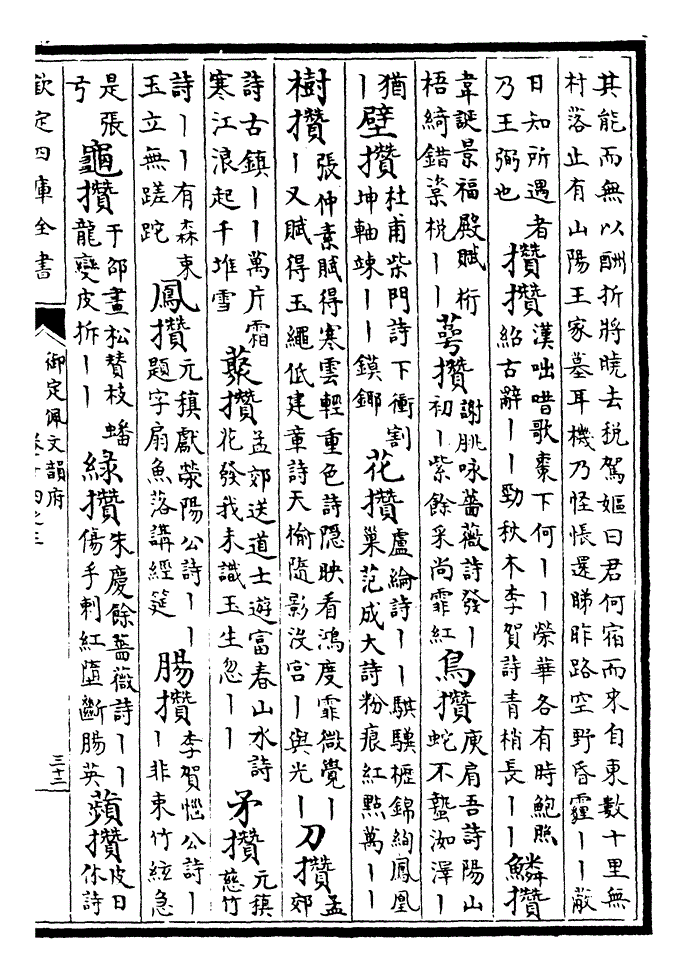 其能而無以酬折將曉去税駕嫗曰君何宿而來自東數十里無
村落止有山陽王家墓耳機乃怪悵還睇昨路空野昏霾丨丨蔽
日知所遇者
乃王弼也
攢攢
漢咄唶歌棗下何丨丨榮華各有時鮑照
紹古辭丨丨勁秋木李賀詩青梢長丨丨
鱗攢
韋誕景福殿賦桁
梧綺錯棻梲丨丨
萼攢
謝朓咏薔薇詩發丨
初丨紫餘采尚霏紅
鳥攢
庾肩吾詩陽山
蛇不螫洳澤丨
猶
丨
壁攢
杜甫柴門詩下衝割
坤軸竦丨丨鏌鋣
花攢
盧綸詩丨丨騏驥櫪錦絢鳳凰
巢范成大詩粉痕紅點萬丨丨
樹攢
張仲素賦得寒雲輕重色詩隱映看鴻度霏微覺丨
丨又賦得玉繩低建章詩天榆隨影没宮丨與光丨
刀攢
孟
郊
詩古鎮丨丨萬片霜
寒江浪起千堆雪
藂攢
孟郊送道士遊富春山水詩
花發我未識玉生忽丨丨
矛攢
元稹
慈竹
詩丨丨有森束
玉立無蹉跎
鳳攢
元稹獻滎陽公詩丨丨
題字扇魚落講經筵
腸攢
李賀惱公詩丨
丨非束竹絃急
是張
弓
龜攢
于邵畫松賛枝蟠
龍變皮拆丨丨
緑攢
朱慶餘薔薇詩丨丨
傷手刺紅墮斷腸英
蘋攢
皮日
休詩
欽定四庫全書
御定佩文韻府
卷十四之三
三十二